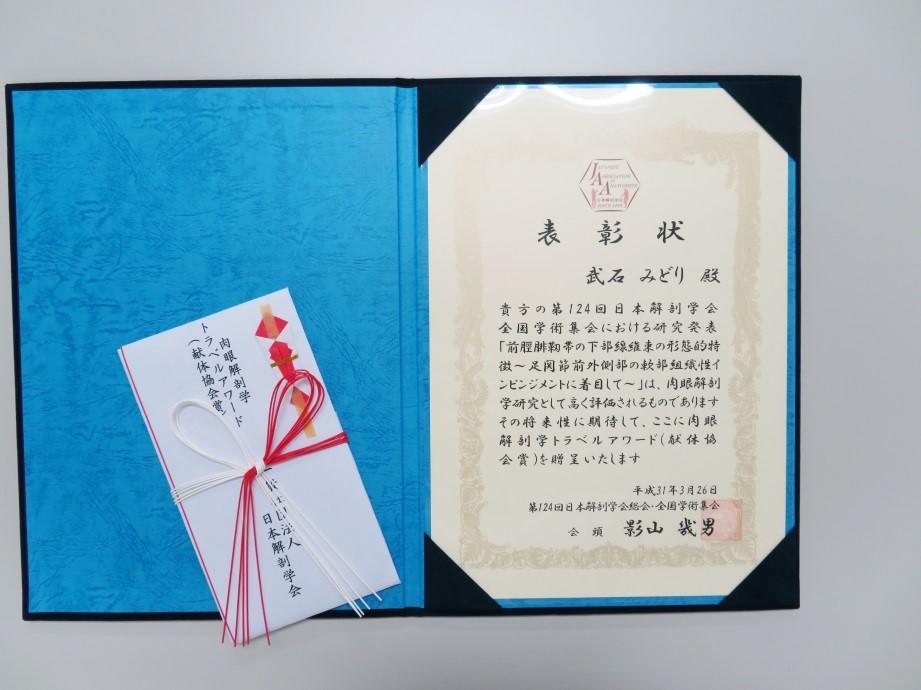 肉眼解剖学
トラベルアワード
(献体協会賞)
団法人
日本解剖学会
JAPANESE
ASSOCIATION
OF
ANATOMISTS
日本解剖学会
SINCE 1893
表彰状
武石 みどり 殿
貴方の第124回日本解剖学会
全国学術集会における研究発表
「前脛腓靭帯の下部線維束の形態的特
徴～足関節前外側部の軟部組織性イ
ンピンジメントに着目して～」は、肉眼解剖
学研究として高く評価されるものであります
その将来性に期待して、ここに肉眼
解剖学トラベルアワード(献体協
会賞)を贈呈いたします
平成31年3月26日
第124回日本解剖学会総会・全国学術集会
会頭 影山 幾男